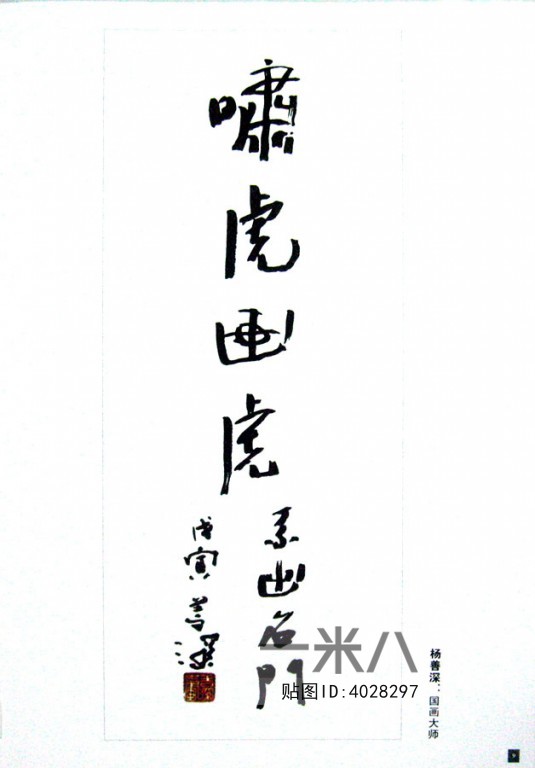 啸虎画虎
系出名門
戊寅善深
杨善深：国画大师
一米八
贴图ID:4028297